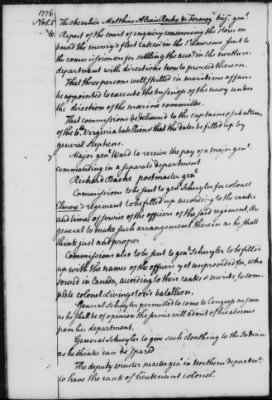 1776
Nov. 5. The chevalier Matthias Alexis Roche de Fermoy brig. genl.
6. Report of the court of inquiry concerning the stores on
board the enemy's fleet taken in the St Lawrence sent to
the commissioners for settling the accots in the northern
department with directions how to proceed thereon.
That three persons well skilled in maritime affairs
be appointed to execute the business of the navy under
the direction of the marine committee.
That commissions be delivered to the captains & subalterns
of the 6th Virginia battalion & that the dates be filled up by
general Stephens.
Major genl Ward to receive the pay of a major genl
commanding in a separate department
7 Richard Bache postmaster genl
Commissions to be sent to genl Schuyler for colonel
Elmore's regiment to be filled up according to the ranks
and times of service of the officers of the said regiment, the
general to make such arrangement therein as he shall
think just and proper
Commissions also to be sent to genl Schuyler to be filled
up with the names of the officers yet unprovided for, who
served in Canada, according to their ranks & merits, to com-
plete colonel Livingston's battalion.
General Schuyler permitted to come to Congress as soon
as he shall be of opinion the service will admit of his absence
from his department.
General Schuyler to give such cloathing to the Indians
as he thinks can be spared
The deputy muster master genl in Northern Departmt
to have the rank of lieutenant colonel.